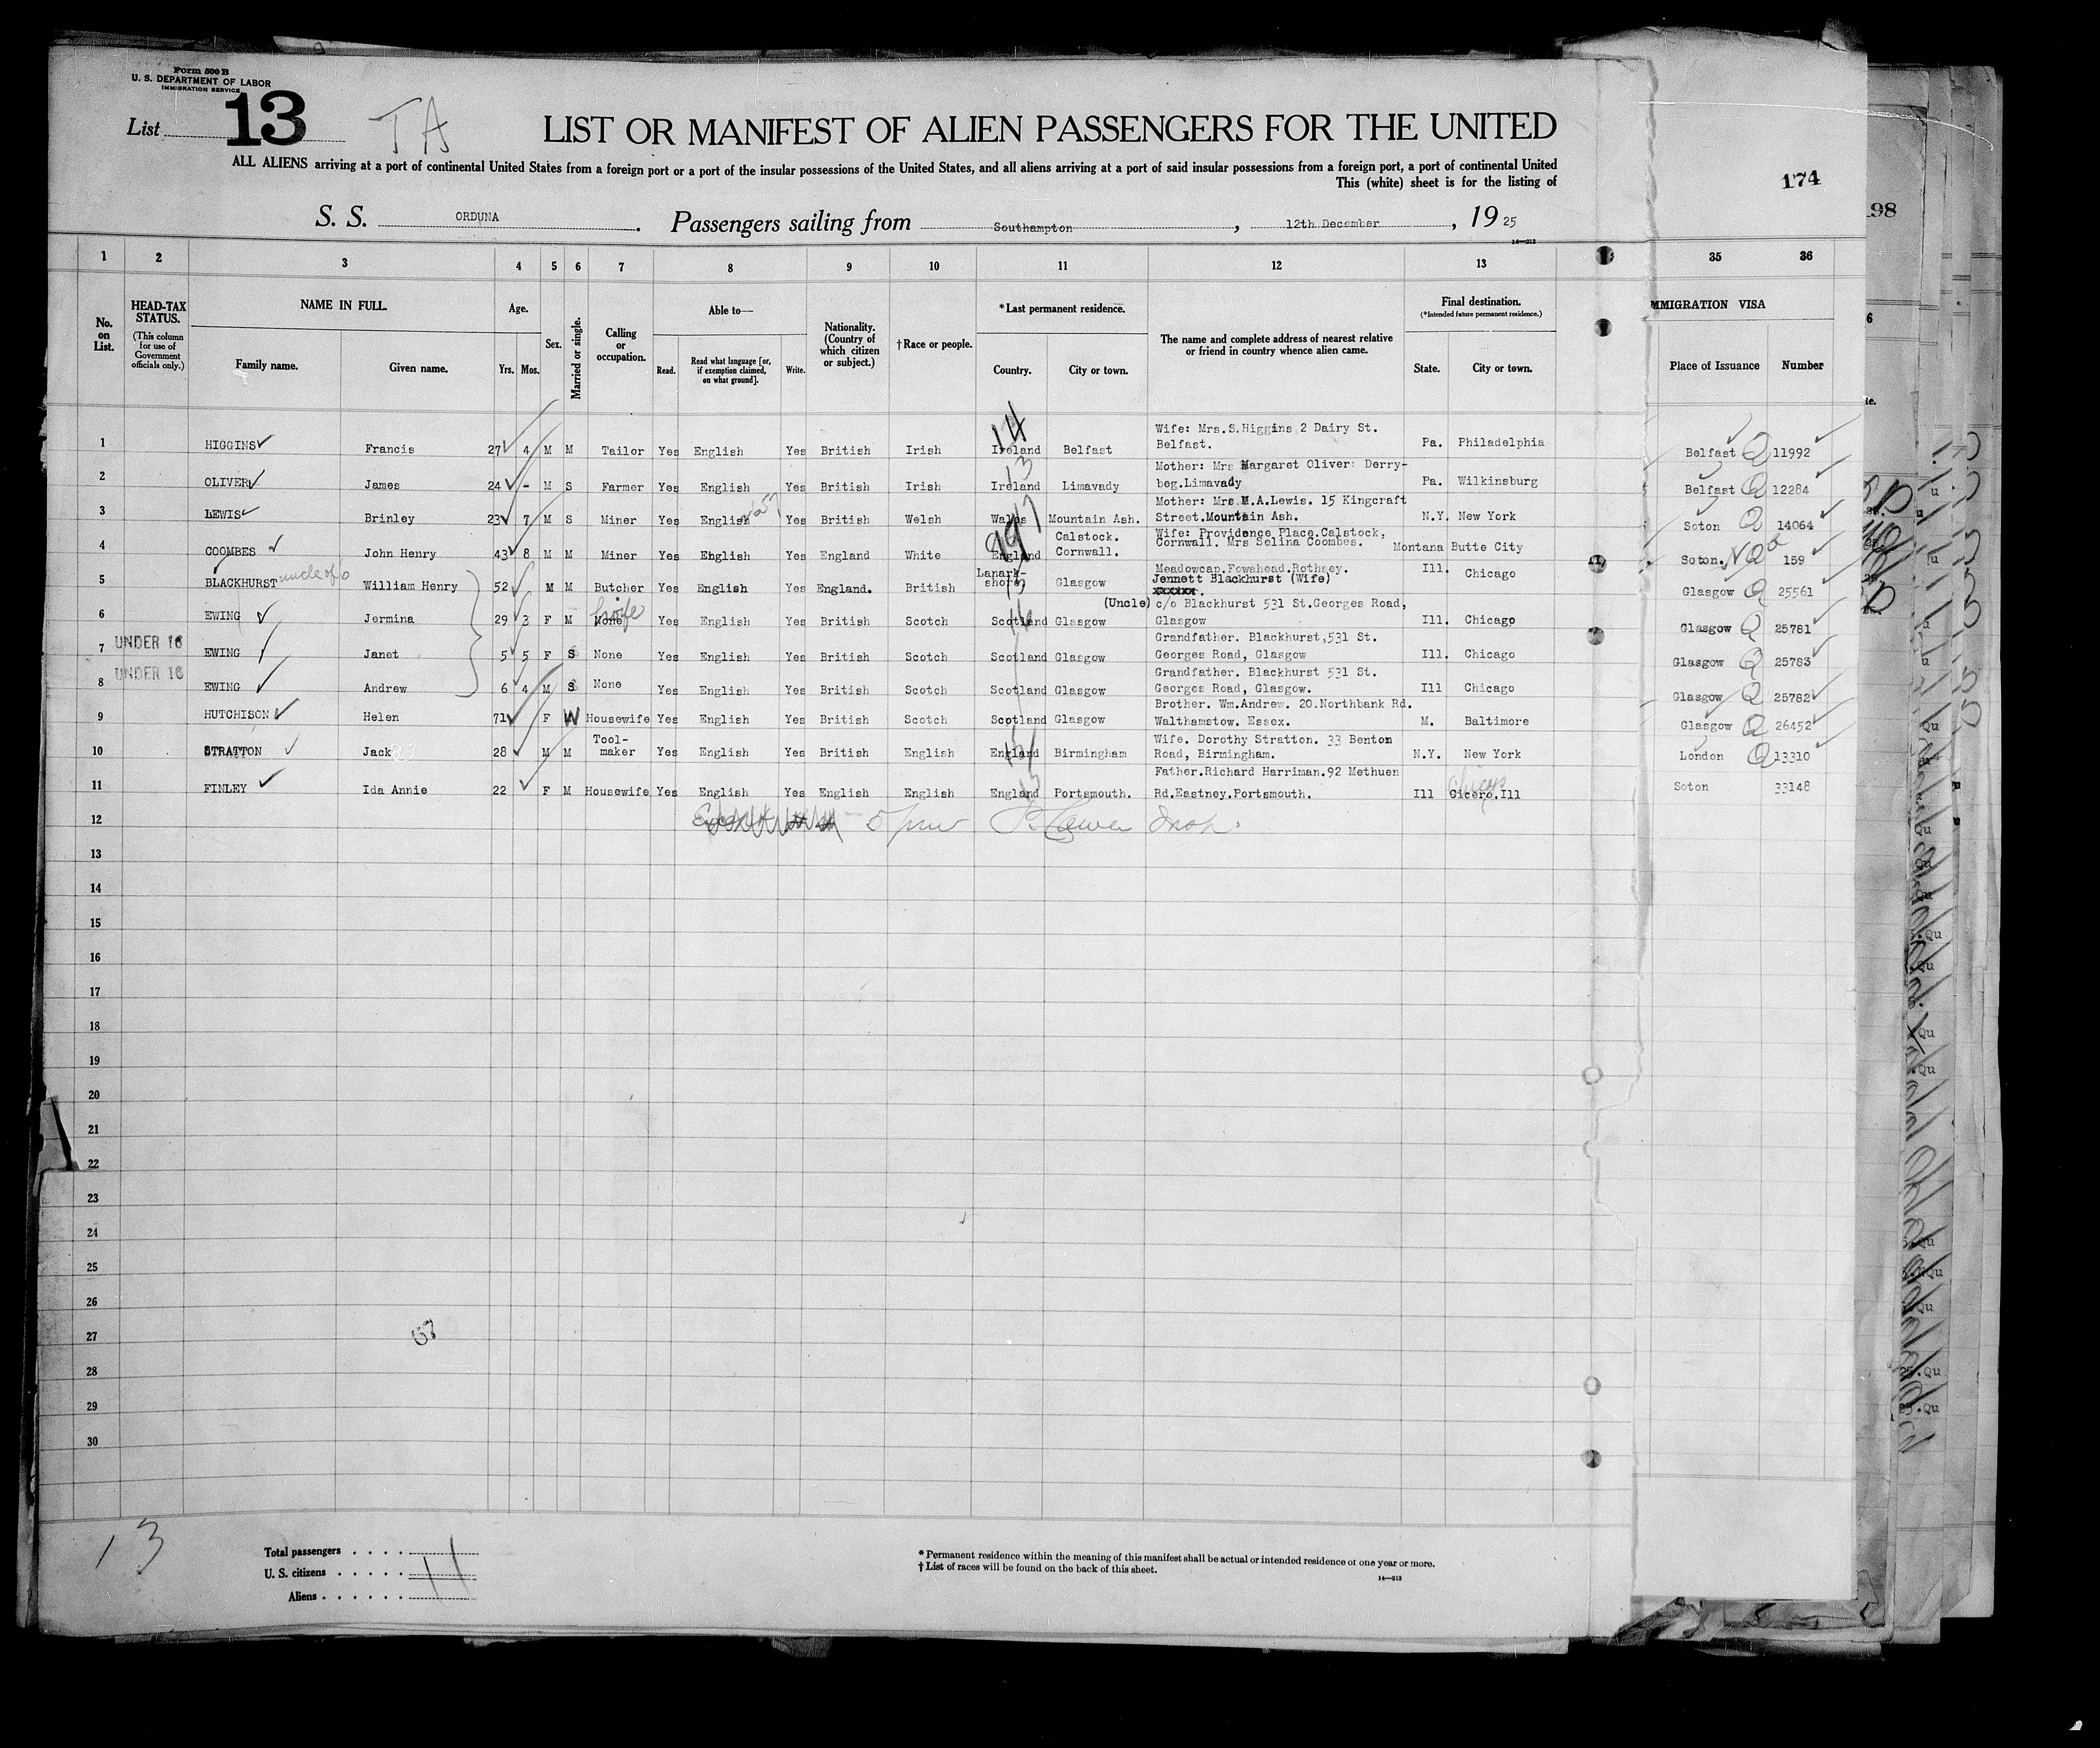 Form 500 B
U. S. DEPARTMENT OF LABOR
IMMIGRATION SERVICE
List 13 TA
LIST OR MANIFEST OF ALIEN PASSENGERS FOR THE UNITED
ALL ALIENS arriving at a port of continental United States from a foreign port or a port of the insular possessions of the United States, and all aliens arriving at a port of said insular possessions from a foreign port, a port of continental United
This (white) sheet is for the listing of
174
98
S. S. ORDUNA. Passengers sailing from Southampton, 12th December, 1925
14—213
1 2 3 4 5 6 7 8 9 10 11 12 13 35 36
No. on List.
HEAD-TAX STATUS.
(This column for use of Government officials only.)
NAME IN FULL.
Family name. Given name.
Age.
Yrs. Mos.
Sex.
Married or single.
Calling or occupation.
Able to—
Read. Read what language [or, if exemption claimed, on what ground]. Write.
Nationality. (Country of which citizen or subject.)
† Race or people.
* Last permanent residence.
Country. City or town.
The name and complete address of nearest relative or friend in country whence alien came.
Final destination.
(*Intended future permanent residence.)
State. City or town.
MMIGRATION VISA
Place of Issuance Number
1 HIGGINS Francis 27 4 M M Tailor Yes English Yes British Irish Ireland Belfast Wife: Mrs.S.Higgins 2 Dairy St. Belfast. Pa. Philadelphia Belfast Q 11992
2 OLIVER James 24 - M S Farmer Yes English Yes British Irish Ireland Limavady Mother: Mrs Margaret Oliver: Derry-beg.Limavady Pa. Wilkinsburg Belfast Q 12284
3 LEWIS Brinley 23 7 M S Miner Yes English Yes British Welsh Wales Mountain Ash. Mother: Mrs.M.A.Lewis. 15 Kingcraft Street.Mountain Ash. N.Y. New York Soton Q 14064
4 COOMBES John Henry 43 8 M M Miner Yes English Yes England White England Calstock. Cornwall. Wife: Providence Place.Calstock, Cornwall. Mrs Selina Coombes. Montana Butte City Soton. NQ 159
5 BLACKHURST uncle of 6 William Henry 52 M M Butcher Yes English Yes England. British Lanark-shore Glasgow Meadowcap.Fowahead.Rothsey. Jennett Blackhurst (Wife) Ill. Chicago Glasgow Q 25561
6 EWING Jermina 29 3 F M None H wife Yes English Yes British Scotch Scotland Glasgow (Uncle) c/o Blackhurst 531 St.Georges Road, Glasgow Ill. Chicago Glasgow Q 25781
7 UNDER 16 EWING Janet 5 5 F S None Yes English Yes British Scotch Scotland Glasgow Grandfather. Blackhurst,531 St. Georges Road, Glasgow Ill. Chicago Glasgow Q 25783
8 UNDER 16 EWING Andrew 6 4 M S None Yes English Yes British Scotch Scotland Glasgow Grandfather. Blackhurst 531 St. Georges Road, Glasgow. Ill Chicago Glasgow Q 25782
9 HUTCHISON Helen 71 F W Housewife Yes English Yes British Scotch Scotland Glasgow Brother. Wm.Andrew. 20.Northbank Rd. Walthamstow. Essex. M. Baltimore Glasgow Q 26452
10 STRATTON Jack 28 M M Tool-maker Yes English Yes British English England Birmingham Wife. Dorothy Stratton. 33 Benton Road, Birmingham. N.Y. New York London Q 13310
11 FINLEY Ida Annie 22 F M Housewife Yes English Yes English English England Portsmouth. Father.Richard Harriman.92 Methuen Rd.Eastney.Portsmouth. Ill Cicero.Ill Soton 33148
12
13
14
15
16
17
18
19
20
21
22
23
24
25
26
27
28
29
30
67
13
Total passengers . . . .
U. S. citizens . . . . . 11
Aliens . . . . . .
* Permanent residence within the meaning of this manifest shall be actual or intended residence of one year or more.
† List of races will be found on the back of this sheet.
14—213